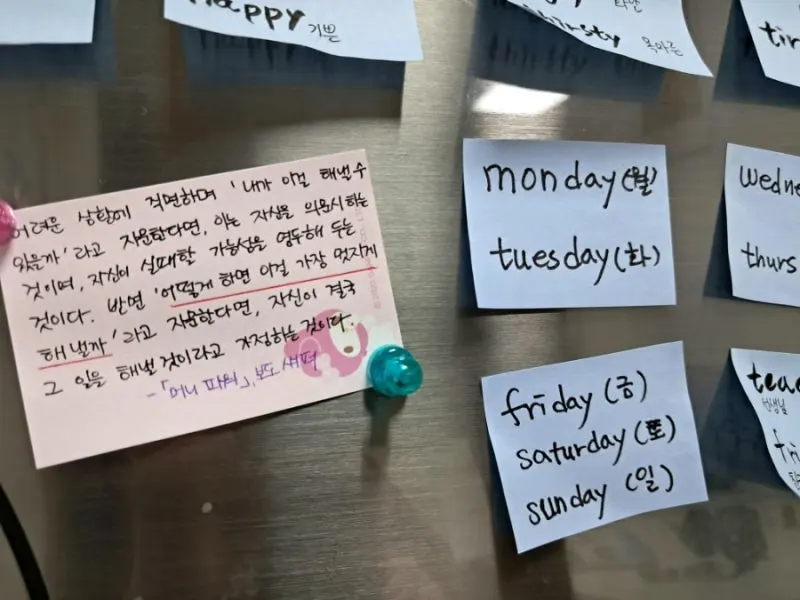 Happy 기쁜
thirsty 목마른
어려운 상황에 직면하며 '내가 이걸 해낼수
있을까'라고 자문한다면, 이는 자신을 의심시 하는
것이며, 자신이 실패할 가능성을 염두해 두는
것이다. 반면 '어떻게 하면 이걸 가장 멋지게
해낼까'라고 자문한다면, 자신이 결국
그 일을 해낼 것이라고 가정하는 것이다.
monday (월)
tuesday (화)
wedne
thurs
friday (금)
saturday (토)
sunday (일)
tea
선생님